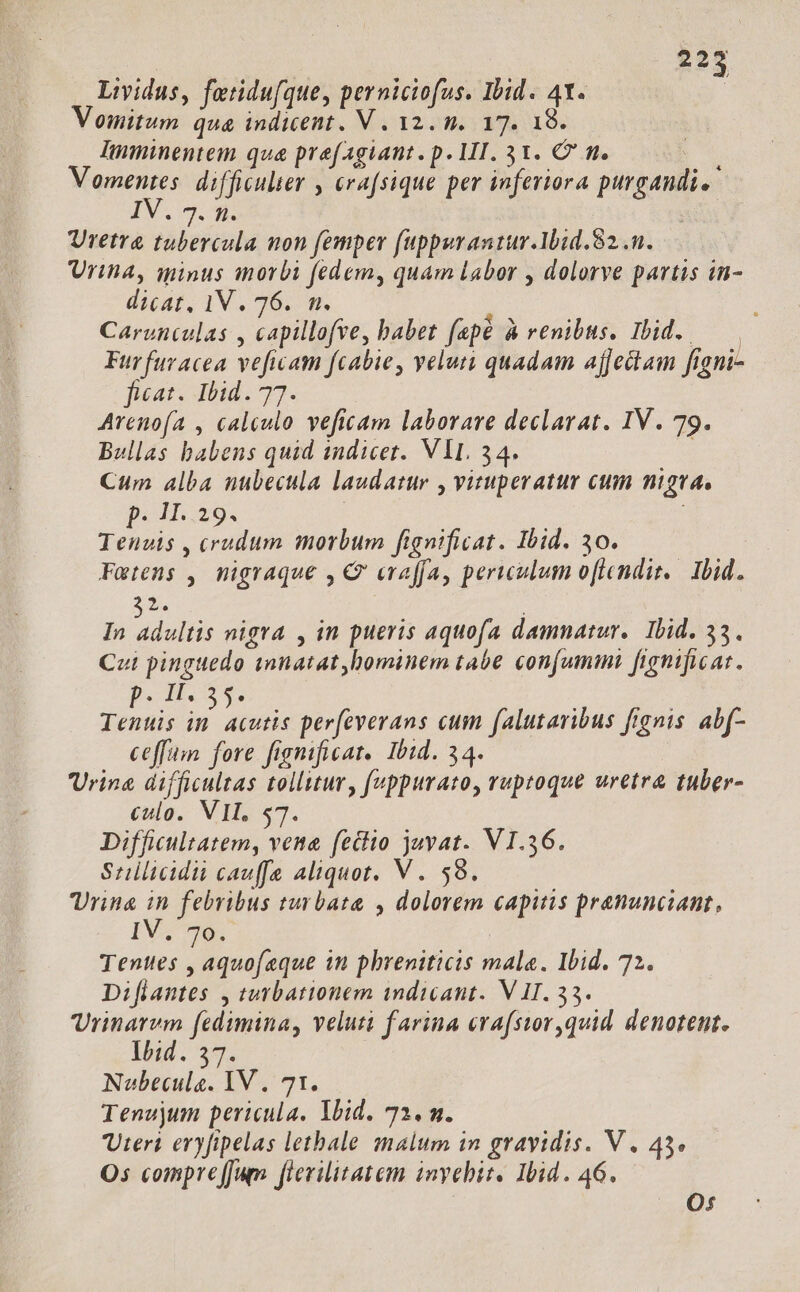 223
Lividus, fœtiduſque, pernicioſus. Ibid. 41.
Vomitum quæ indicent. V. 12. n. 17. 18.
Imminentem quæ præſagiant. p. III. 31. & n.
Vomentes difficulter, craſsique per inferiora purgandi.
IV. 7. n.
Uretræ tubercula non ſemper ſuppurantur. Ibid. 82. n.
Urina, minus morbi ſedem, quàm labor, dolorve partis in-
dicat, IV. 76. n.
Carunculas, capilloſve, habet ſæpè à renibus. Ibid.
Furfuracea veſicam ſcabie, veluti quadam affectam ſigni-
ficat. Ibid. 77.
Arenoſa, calculo veſicam laborare declarat. IV. 79.
Bullas habens quid indicet. VII. 34.
Cum alba nubecula laudatur, vituperatur cum nigra.
p. II. 29.
Tenuis, crudum morbum ſignificat. Ibid. 30.
Fœtens, nigraque, & craſſa, periculum oſtendit. Ibid.
32.
In adultis nigra, in pueris aquoſa damnatur. Ibid. 33.
Cui pinguedo innatat, hominem tabe conſummi ſignificat.
p. II. 35.
Tenuis in acutis perſeverans cum ſalutaribus ſignis abſ-
ceſſum fore ſignificat. Ibid. 34.
Urinæ difficultas tollitur, ſuppurato, ruptoque uretræ tuber-
culo. VII. 57.
Difficultatem, venæ ſectio juvat. VI. 36.
Stillicidii cauſſæ aliquot. V. 58.
Urinæ in febribus turbatæ, dolorem capitis prænunciant,
IV. 70.
Tenues, aquoſæque in phreniticis malæ. Ibid. 72.
Diſtantes, turbationem indicant. VII. 33.
Urinarum ſedimina, veluti farina craſsior, quid denotent.
Ibid. 37.
Nubeculæ. IV. 71.
Tenujum pericula. Ibid. 72. n.
Uteri eryſipelas lethale malum in gravidis. V. 43.
Os compreſſum ſterilitatem invehit. Ibid. 46.
Os